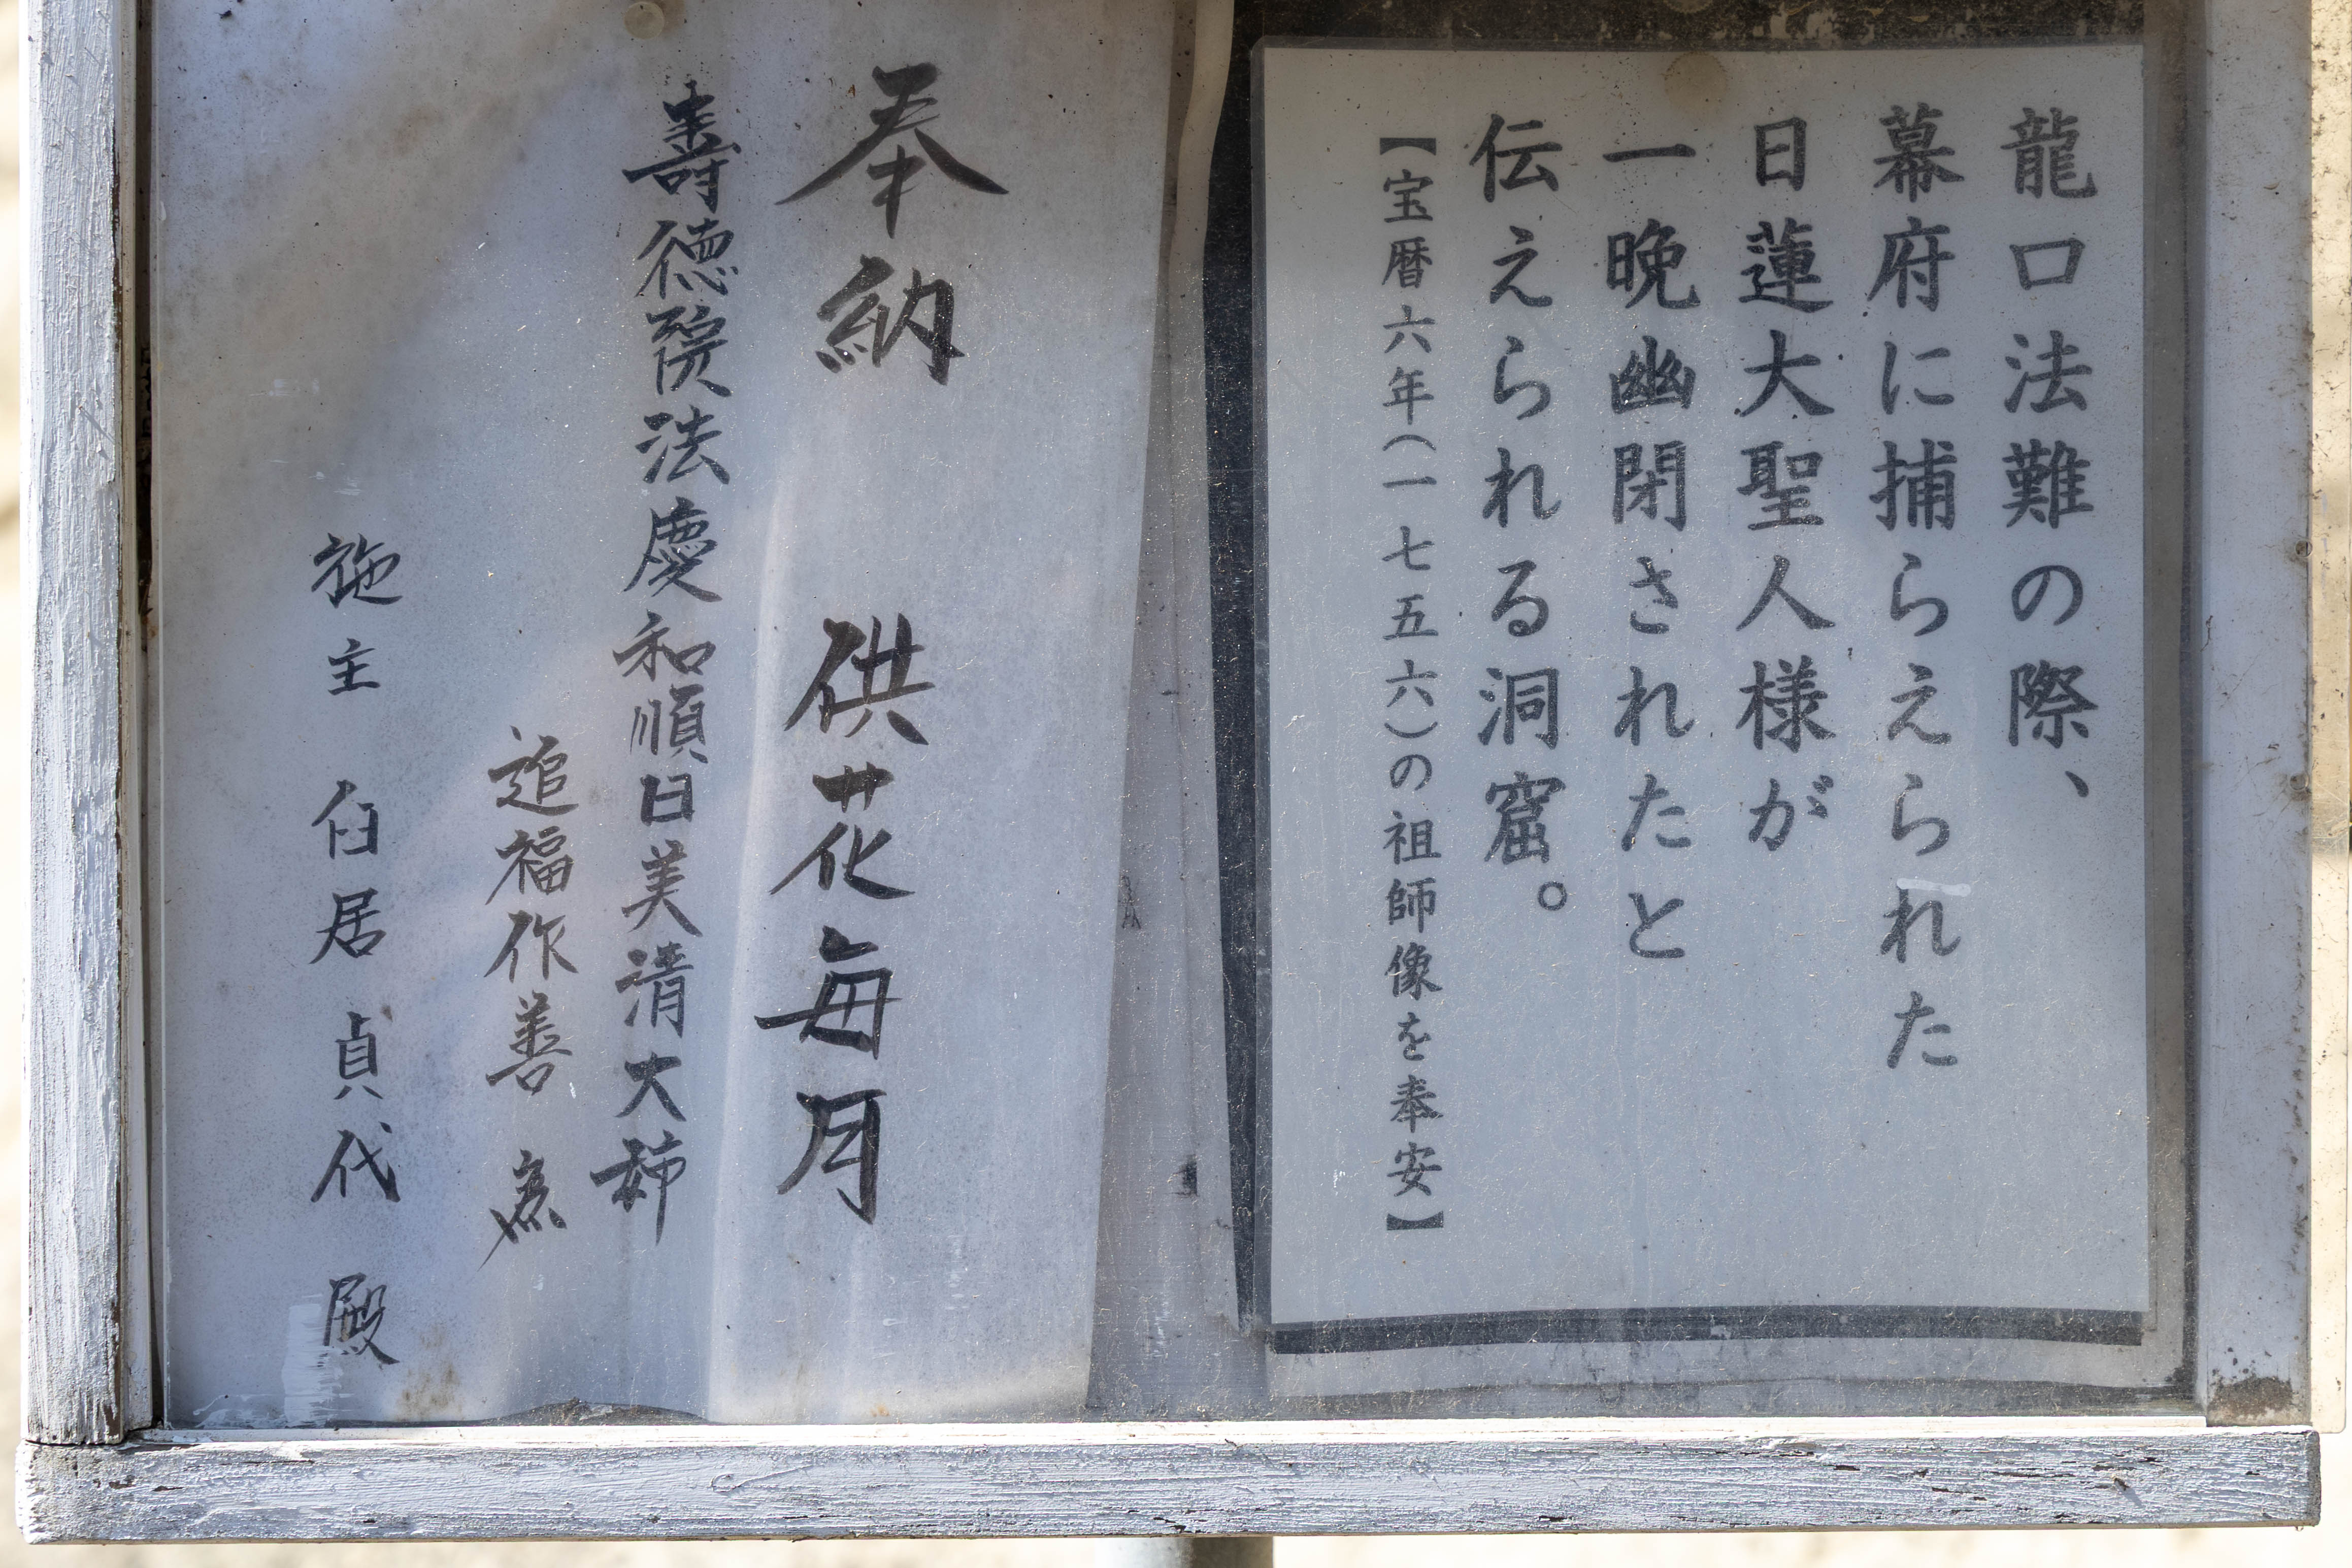 龍口法難の際、
幕府に捕らえられた
日蓮大聖人様が
一晩幽閉されたと
伝えられる洞窟。
【宝暦六年(一七五六)の祖師像を奉安】
奉納 供花毎月
壽徳院法慶和順日美清大姉
追福作善 為
施主 臼居 貞代 殿